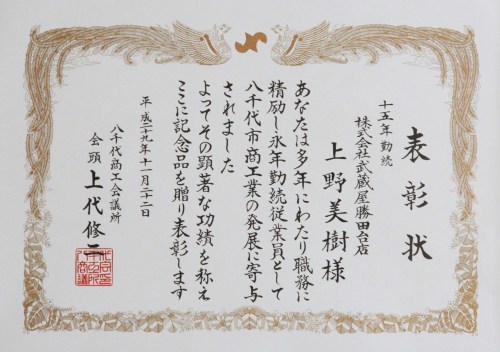 表彰状
十五年勤続
株式会社武蔵屋勝田台店
上野美樹様
あなたは多年にわたり職務に
精励し永年勤続従業員として
八千代市商工業の発展に寄与
されました
よってその顕著な功績を称え
ここに記念品を贈り表彰します
平成二十九年十一月二十二日
八千代商工会議所
会頭 上代修二